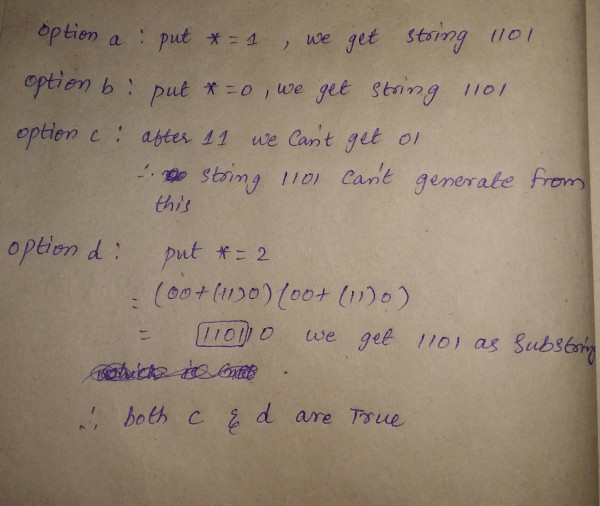 option a : put * = 1 , we get string 1101
option b : put * = 0 , we get string 1101
option c : after 11 we Can't get 01
∴ string 1101 can't generate from
this
option d : put * = 2
= (00+(11)0) (00+ (11)0)
= 110110 we get 1101 as Substring
∴ both c & d are True